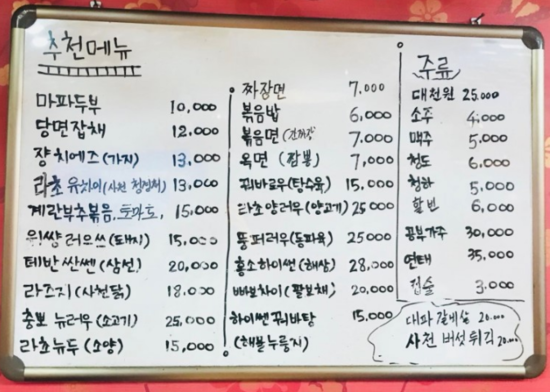 추천메뉴
마파두부 10,000
당면잡채 12,000
쟝치에즈 (가지) 13,000
라초 유차이 (사천 청경채) 13,000
계란부추볶음, 토마토, 15,000
위썅러우쓰 (돼지) 15,000
테반싼쎈 (삼선) 20,000
라즈지 (사천닭) 18,000
총뽀 뉴러우 (소고기) 25,000
라초뉴두 (소양) 15,000
짜장면 7,000
볶음밥 6,000
볶음면 7,000
옥면 (짬뽕) 7,000
꿔바로우 (탕수육) 15,000
라초양러우 (양고기) 25,000
뚱퍼러우 (동파육) 25,000
홍소하이쎈 (해삼) 28,000
빠보차이 (팔보채) 20,000
하이쎈꿔바탕 15,000
(해물누룽지)
주류
대천원 25,000
소주 4,000
맥주 5,000
청도 6,000
청하 5,000
할빈 6,000
공부가주 30,000
연태 35,000
3,000
대파갈비살 20,000
사천 버섯튀김 20,000